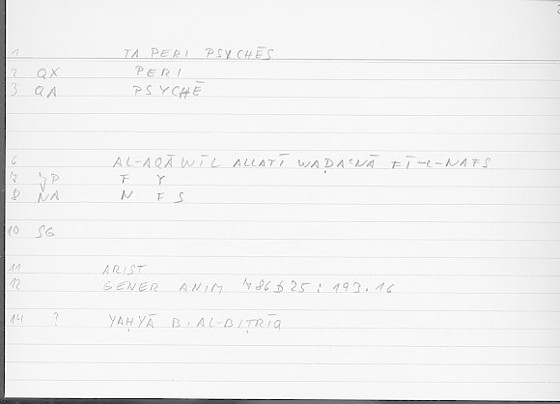 1 TA PERI PSYCHĒS
2 QX PERI
3 QA PSYCHĒ
6 AL-AQĀWĪL ALLATĪ WAḌAʿNĀ FĪ-L-NAFS
7 JP F Y
8 NA N F S
10 SG
11 ARIST
12 GENER ANIM 786b25 : 193.16
14 ? YAḤYĀ B. AL-BIṬRĪQ